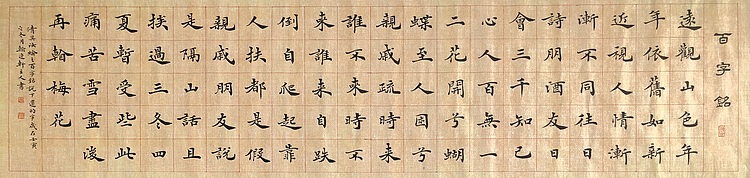 百字銘
遠觀山色年
年依舊如新
近視人情漸
漸不同往日
詩朋酒友日
會三千知己
心人百無一
二花開兮蝴
蝶至人困兮
親戚疏時來
誰不來時不
來誰來自跌
倒自爬起靠
人扶都是假
親戚朋友說
是隔山話且
挨過三冬四
夏暫受些此
痛苦雪盡後
再翰梅花
清吳汝綸之百字銘 歲在壬寅
之冬月 軒主人書